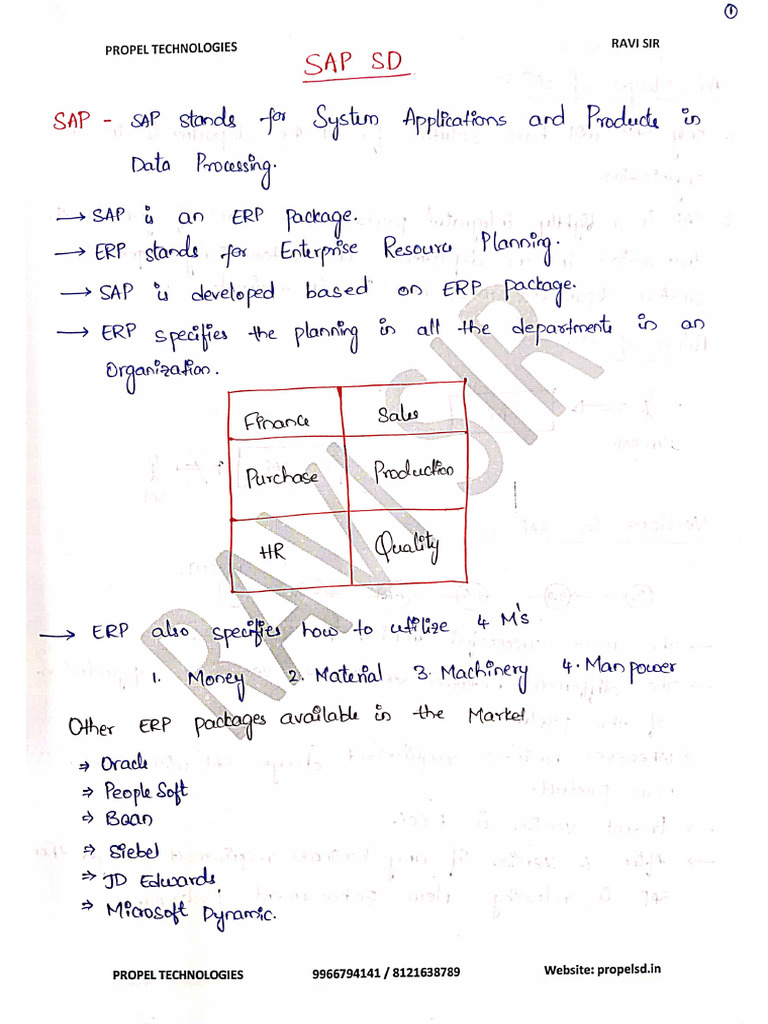 ①
PROPEL TECHNOLOGIES RAVI SIR
SAP SD
SAP - SAP stands for System Applications and Products in
Data Processing.
→ SAP is an ERP package.
→ ERP stands for Enterprise Resource Planning.
→ SAP is developed based on ERP package.
→ ERP specifies the planning in all the departments in an
Organization.
Finance Sales
Purchase Production
HR Quality
RAVI SIR
→ ERP also specifies how to utilize 4 M's
1. Money 2. Material 3. Machinery 4. Man power
Other ERP packages available in the Market
⇒ Oracle
⇒ People Soft
⇒ Baan
⇒ Siebel
⇒ JD Edwards.
⇒ Microsoft Dynamic.
PROPEL TECHNOLOGIES 9966794141 / 8121638789 Website: propelsd.in